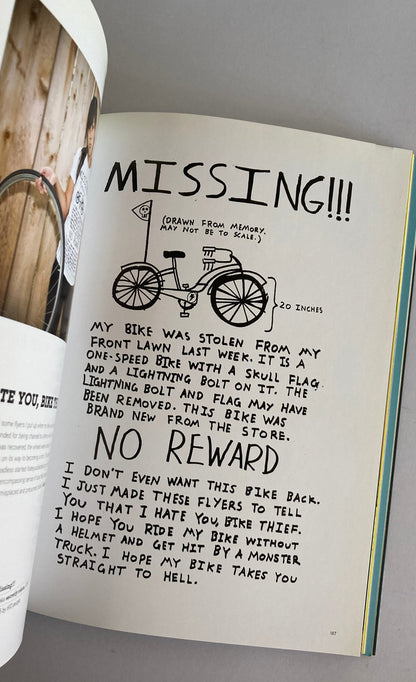 MISSING!!!
(DRAWN FROM MEMORY.
MAY NOT BE TO SCALE.)
20 INCHES
MY BIKE WAS STOLEN FROM MY
FRONT LAWN LAST WEEK. IT IS A
ONE-SPEED BIKE WITH A SKULL FLAG
AND A LIGHTNING BOLT ON IT. THE
LIGHTNING BOLT AND FLAG MAY HAVE
BEEN REMOVED. THIS BIKE WAS
BRAND NEW FROM THE STORE.
NO REWARD
I DON'T EVEN WANT THIS BIKE BACK.
I JUST MADE THESE FLYERS TO TELL
YOU THAT I HATE YOU, BIKE THIEF.
I HOPE YOU RIDE MY BIKE WITHOUT
A HELMET AND GET HIT BY A MONSTER
TRUCK. I HOPE MY BIKE TAKES YOU
STRAIGHT TO HELL.